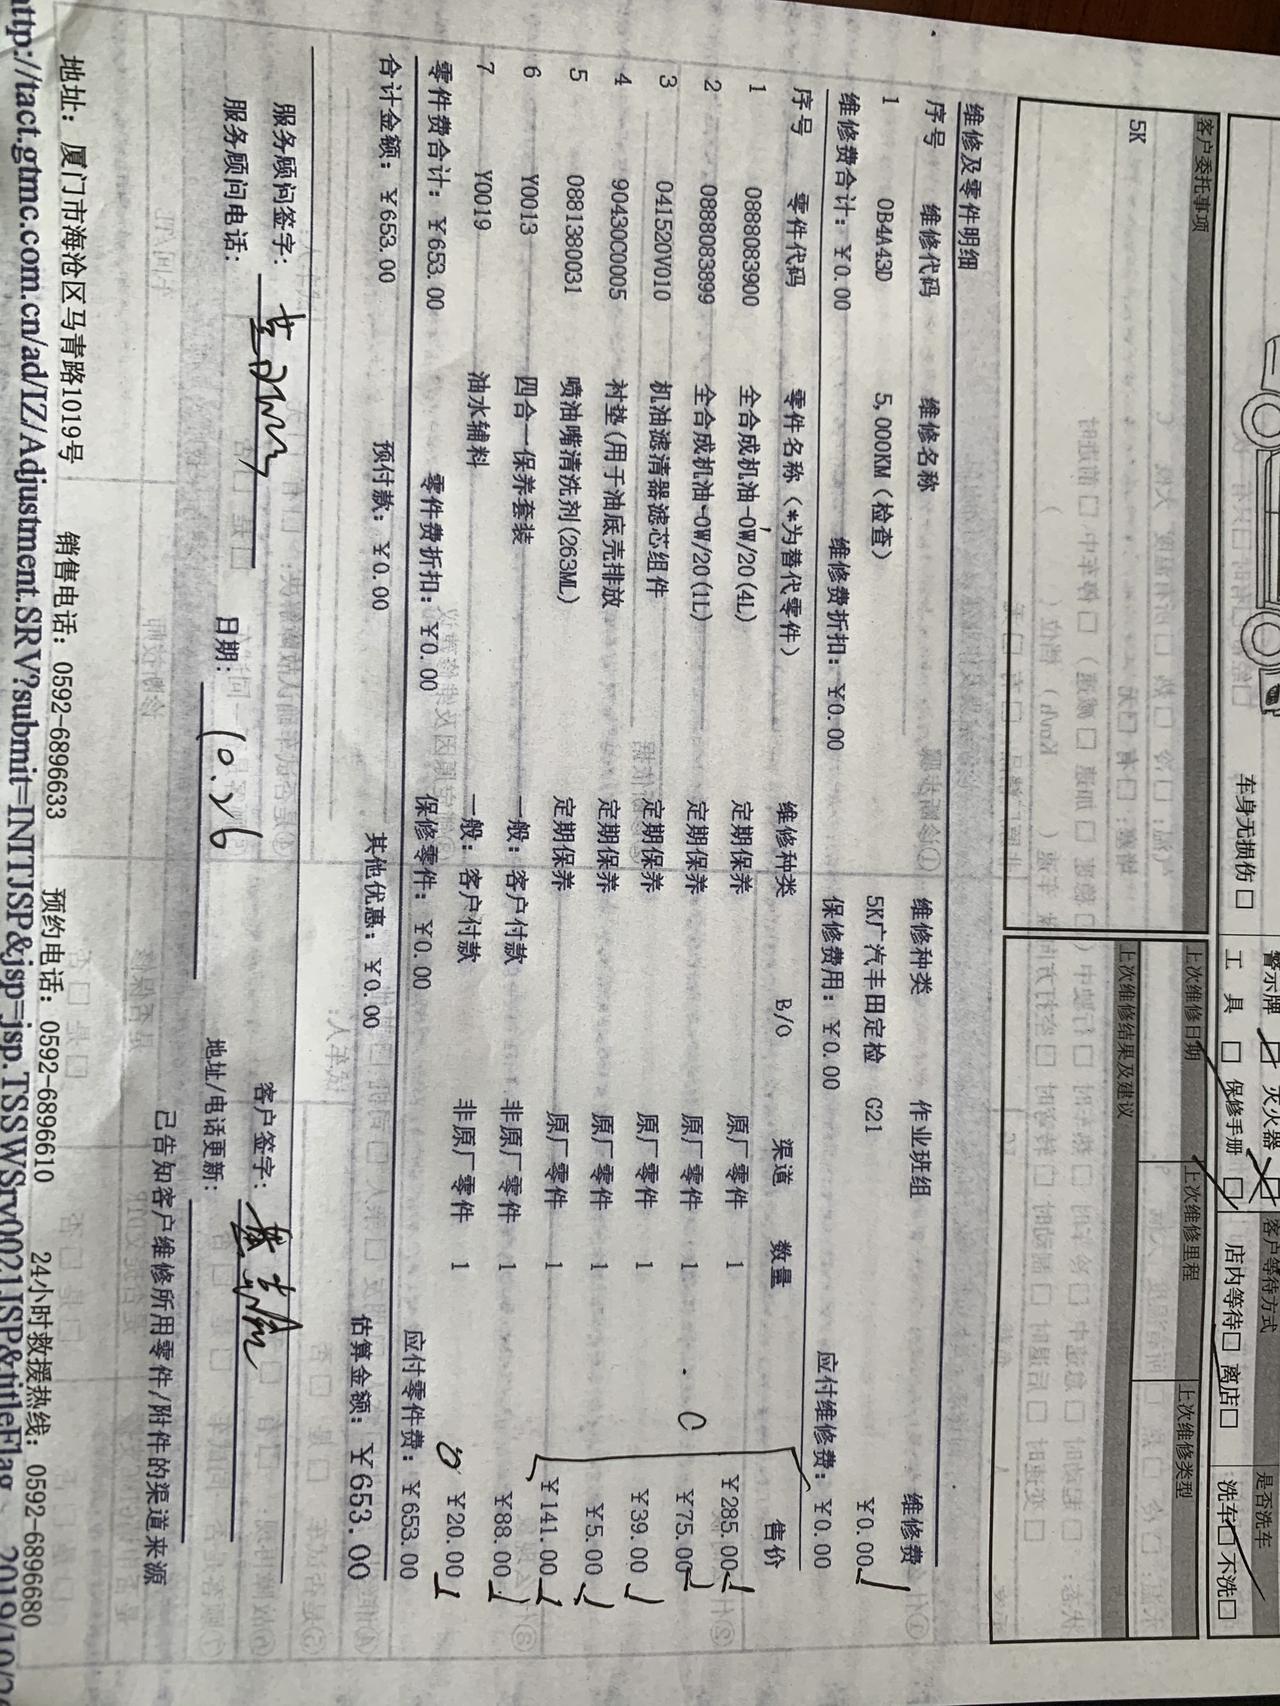 警示牌 灭火器
车身无损伤□ 工 具 □ 保修手册 □ 店内等待□ 离店□ 洗车□ 不洗□
客户等待方式 是否洗车
客户委托事项 上次维修日期 上次维修里程 上次维修类型
5K
上次维修结果及建议
维修及零件明细
序号 维修代码 维修名称 维修种类 作业班组 维修费
1 0B4A43D 5,000KM(检查) 5K广汽丰田定检 G21 ¥0.00
维修费合计: ¥0.00 维修费折扣: ¥0.00 保修费用: ¥0.00 应付维修费: ¥0.00
序号 零件代码 零件名称(*为替代零件) 维修种类 B/O 渠道 数量 售价
1 0888083900 全合成机油-0W/20(4L) 定期保养 原厂零件 1 ¥285.00
2 0888083899 全合成机油-0W/20(1L) 定期保养 原厂零件 1 ¥75.00
3 041520V010 机油滤清器滤芯组件 定期保养 原厂零件 1 ¥39.00
4 90430C0005 衬垫(用于油底壳排放 定期保养 原厂零件 1 ¥5.00
5 0881380031 喷油嘴清洗剂(263ML) 定期保养 原厂零件 1 ¥141.00
6 Y0013 四合一保养套装 一般: 客户付款 非原厂零件 1 ¥88.00
7 Y0019 油水辅料 一般: 客户付款 非原厂零件 1 ¥20.00
零件费合计: ¥653.00 零件费折扣: ¥0.00 保修零件: ¥0.00 应付零件费: ¥653.00
合计金额: ¥653.00 预付款: ¥0.00 其他优惠: ¥0.00 估算金额: ¥653.00
服务顾问签字: 客户签字:
服务顾问电话: 日期: 10.26 地址/电话更新:
己告知客户维修所用零件/附件的渠道来源
地址: 厦门市海沧区马青路1019号 销售电话: 0592-6896633 预约电话: 0592-6896610 24小时救援热线: 0592-6896680
http://tact.gtmc.com.cn/ad/IZ/Adjustment.SRV?submit=INITJSP&jsp=jsp.TSSWSrv0021JSP&titleFlag